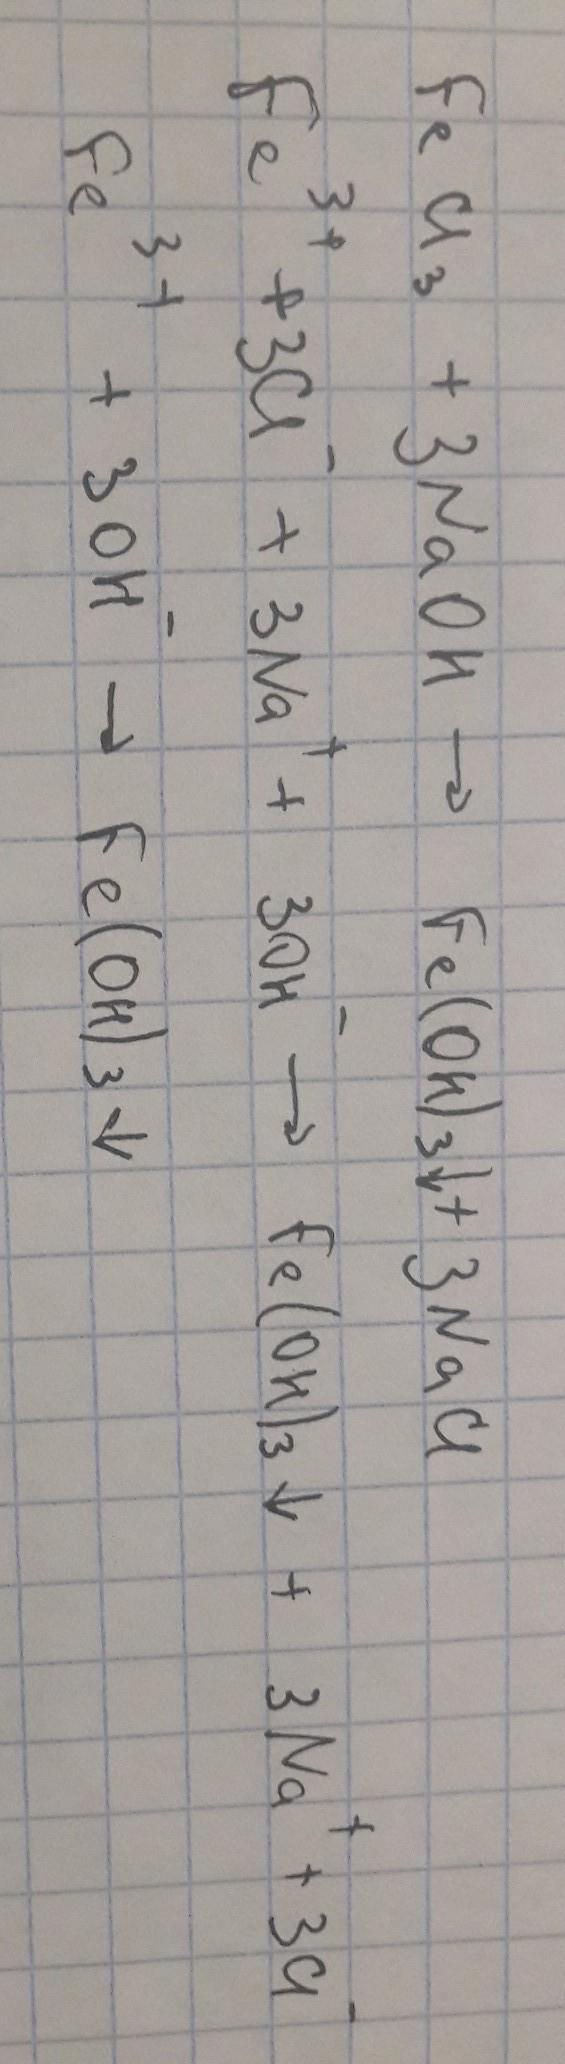 FeCl₃ + 3NaOH → Fe(OH)₃↓ + 3NaCl
Fe³⁺ + 3Cl⁻ + 3Na⁺ + 3OH⁻ → Fe(OH)₃↓ + 3Na⁺ + 3Cl⁻
Fe³⁺ + 3OH⁻ → Fe(OH)₃↓